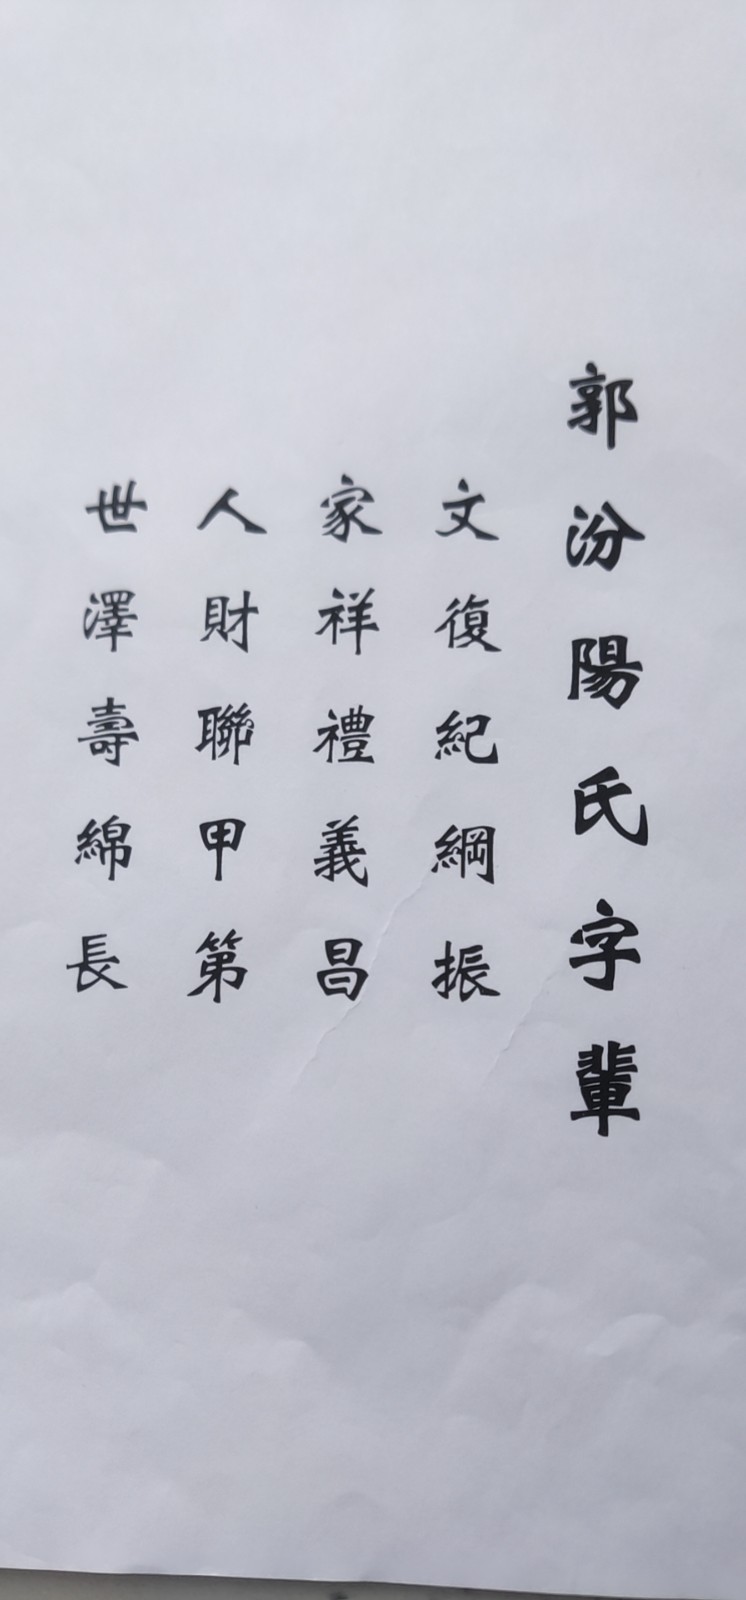 郭汾陽氏字輩
文復紀綱振
家祥禮義昌
人財聯甲第
世澤壽綿長